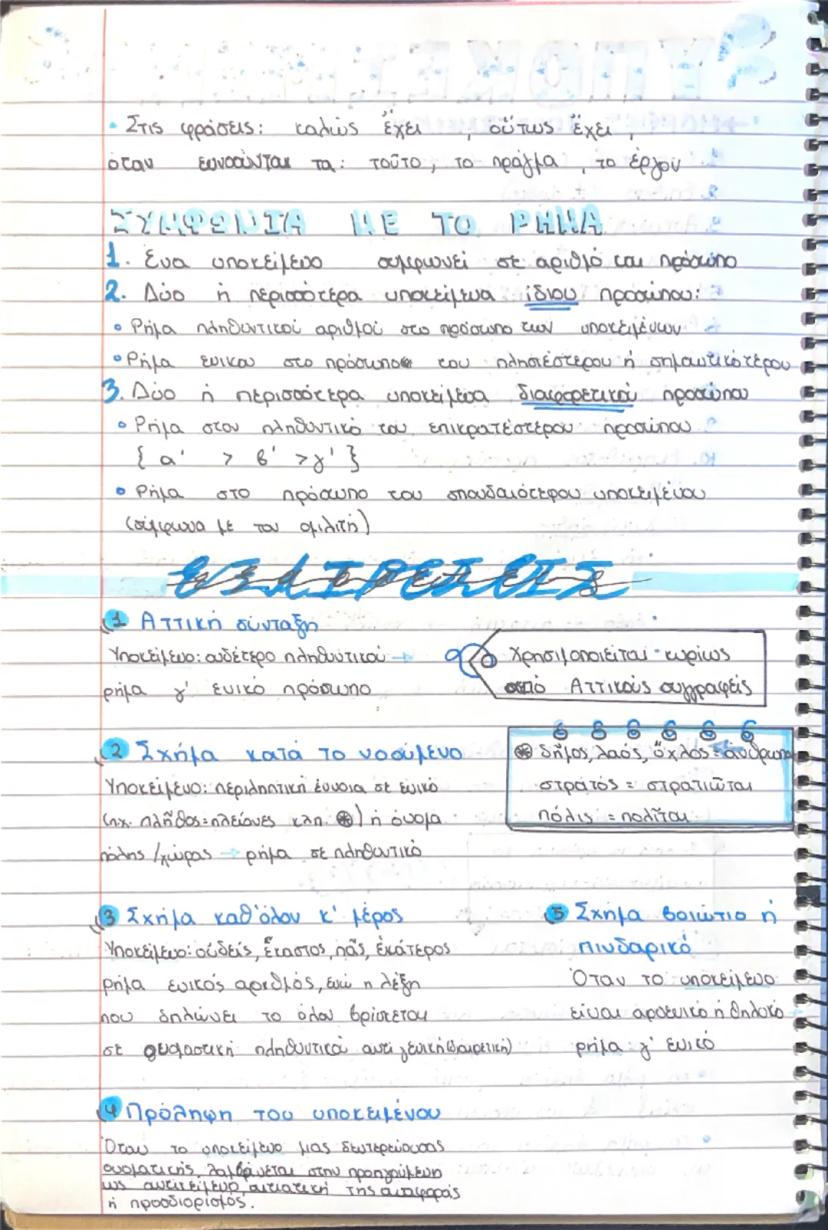 • Στις φράσεις: καλῶς ἔχει , οὕτως ἔχει ,
όταν εννοούνται τα: τοῦτο, το πρᾶγμα, το ἔργον
ΣΥΜΦΩΝΙΑ ΜΕ ΤΟ ΡΗΜΑ
1. Ένα υποκείμενο συμφωνεί σε αριθμό και πρόσωπο
2. Δύο ή περισσότερα υποκείμενα ίδιου προσώπου:
• Ρήμα πληθυντικού αριθμού στο πρόσωπο των υποκειμένων
• Ρήμα ενικού στο πρόσωπο του πλησιέστερου ή σημαντικότερου
3. Δύο ή περισσότερα υποκείμενα διαφορετικού προσώπου
• Ρήμα στον πληθυντικό του επικρατέστερου προσώπου
{ α' > β' > γ' }
• Ρήμα στο πρόσωπο του σπουδαιότερου υποκειμένου
(σύμφωνα με τον ομιλητή)
ΕΞΑΙΡΕΣΕΙΣ
1 Αττική σύνταξη
Υποκείμενο: ουδέτερο πληθυντικού →
ρήμα γ' ενικό πρόσωπο
Χρησιμοποιείται κυρίως
από Αττικούς συγγραφείς
2 Σχήμα κατά το νοούμενο
Υποκείμενο: περιληπτική έννοια σε ενικό
(πχ. πλῆθος = πλείονες κλπ. ⊛) ή όνομα
πόλης / χώρας → ρήμα σε πληθυντικό
⊛ δῆμος, λαός, ὄχλος = άνθρωποι
στρατός = στρατιῶται
πόλις = πολῖται
3 Σχήμα καθ'όλον κ' μέρος
Υποκείμενο: οὐδείς, ἕκαστος, πᾶς, ἑκάτερος
ρήμα ενικός αριθμός, ενώ η λέξη
που δηλώνει το όλον βρίσκεται
σε ονομαστική πληθυντικού αντί γενική (διαιρετική)
5 Σχήμα βοιώτιο ή
πινδαρικό
Όταν το υποκείμενο
είναι αρσενικό ή θηλυκό →
ρήμα γ' ενικό
4 Πρόληψη του υποκειμένου
Όταν το υποκείμενο μιας δευτερεύουσας
ονοματικής λαμβάνεται στην προηγούμενη
ως αντικείμενο αιτιατική της αναφοράς
ή προσδιορισμός.